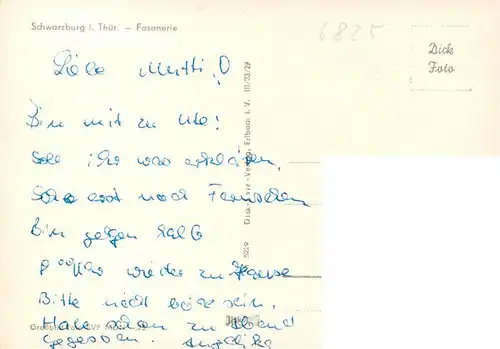 Schwarzburg i. Thür. – Fasanerie
6825
Dick
Foto
Liebe Mutti!
Bin mit zu Ute!
Soll ihr was erklären.
Sehe erst noch Fernsehen
Bin gegen halb
wieder zu Hause
Bitte nicht böse sein.
Habe schon zu Abend
gegessen. Angelika
Erlbach i. V. III/23/27